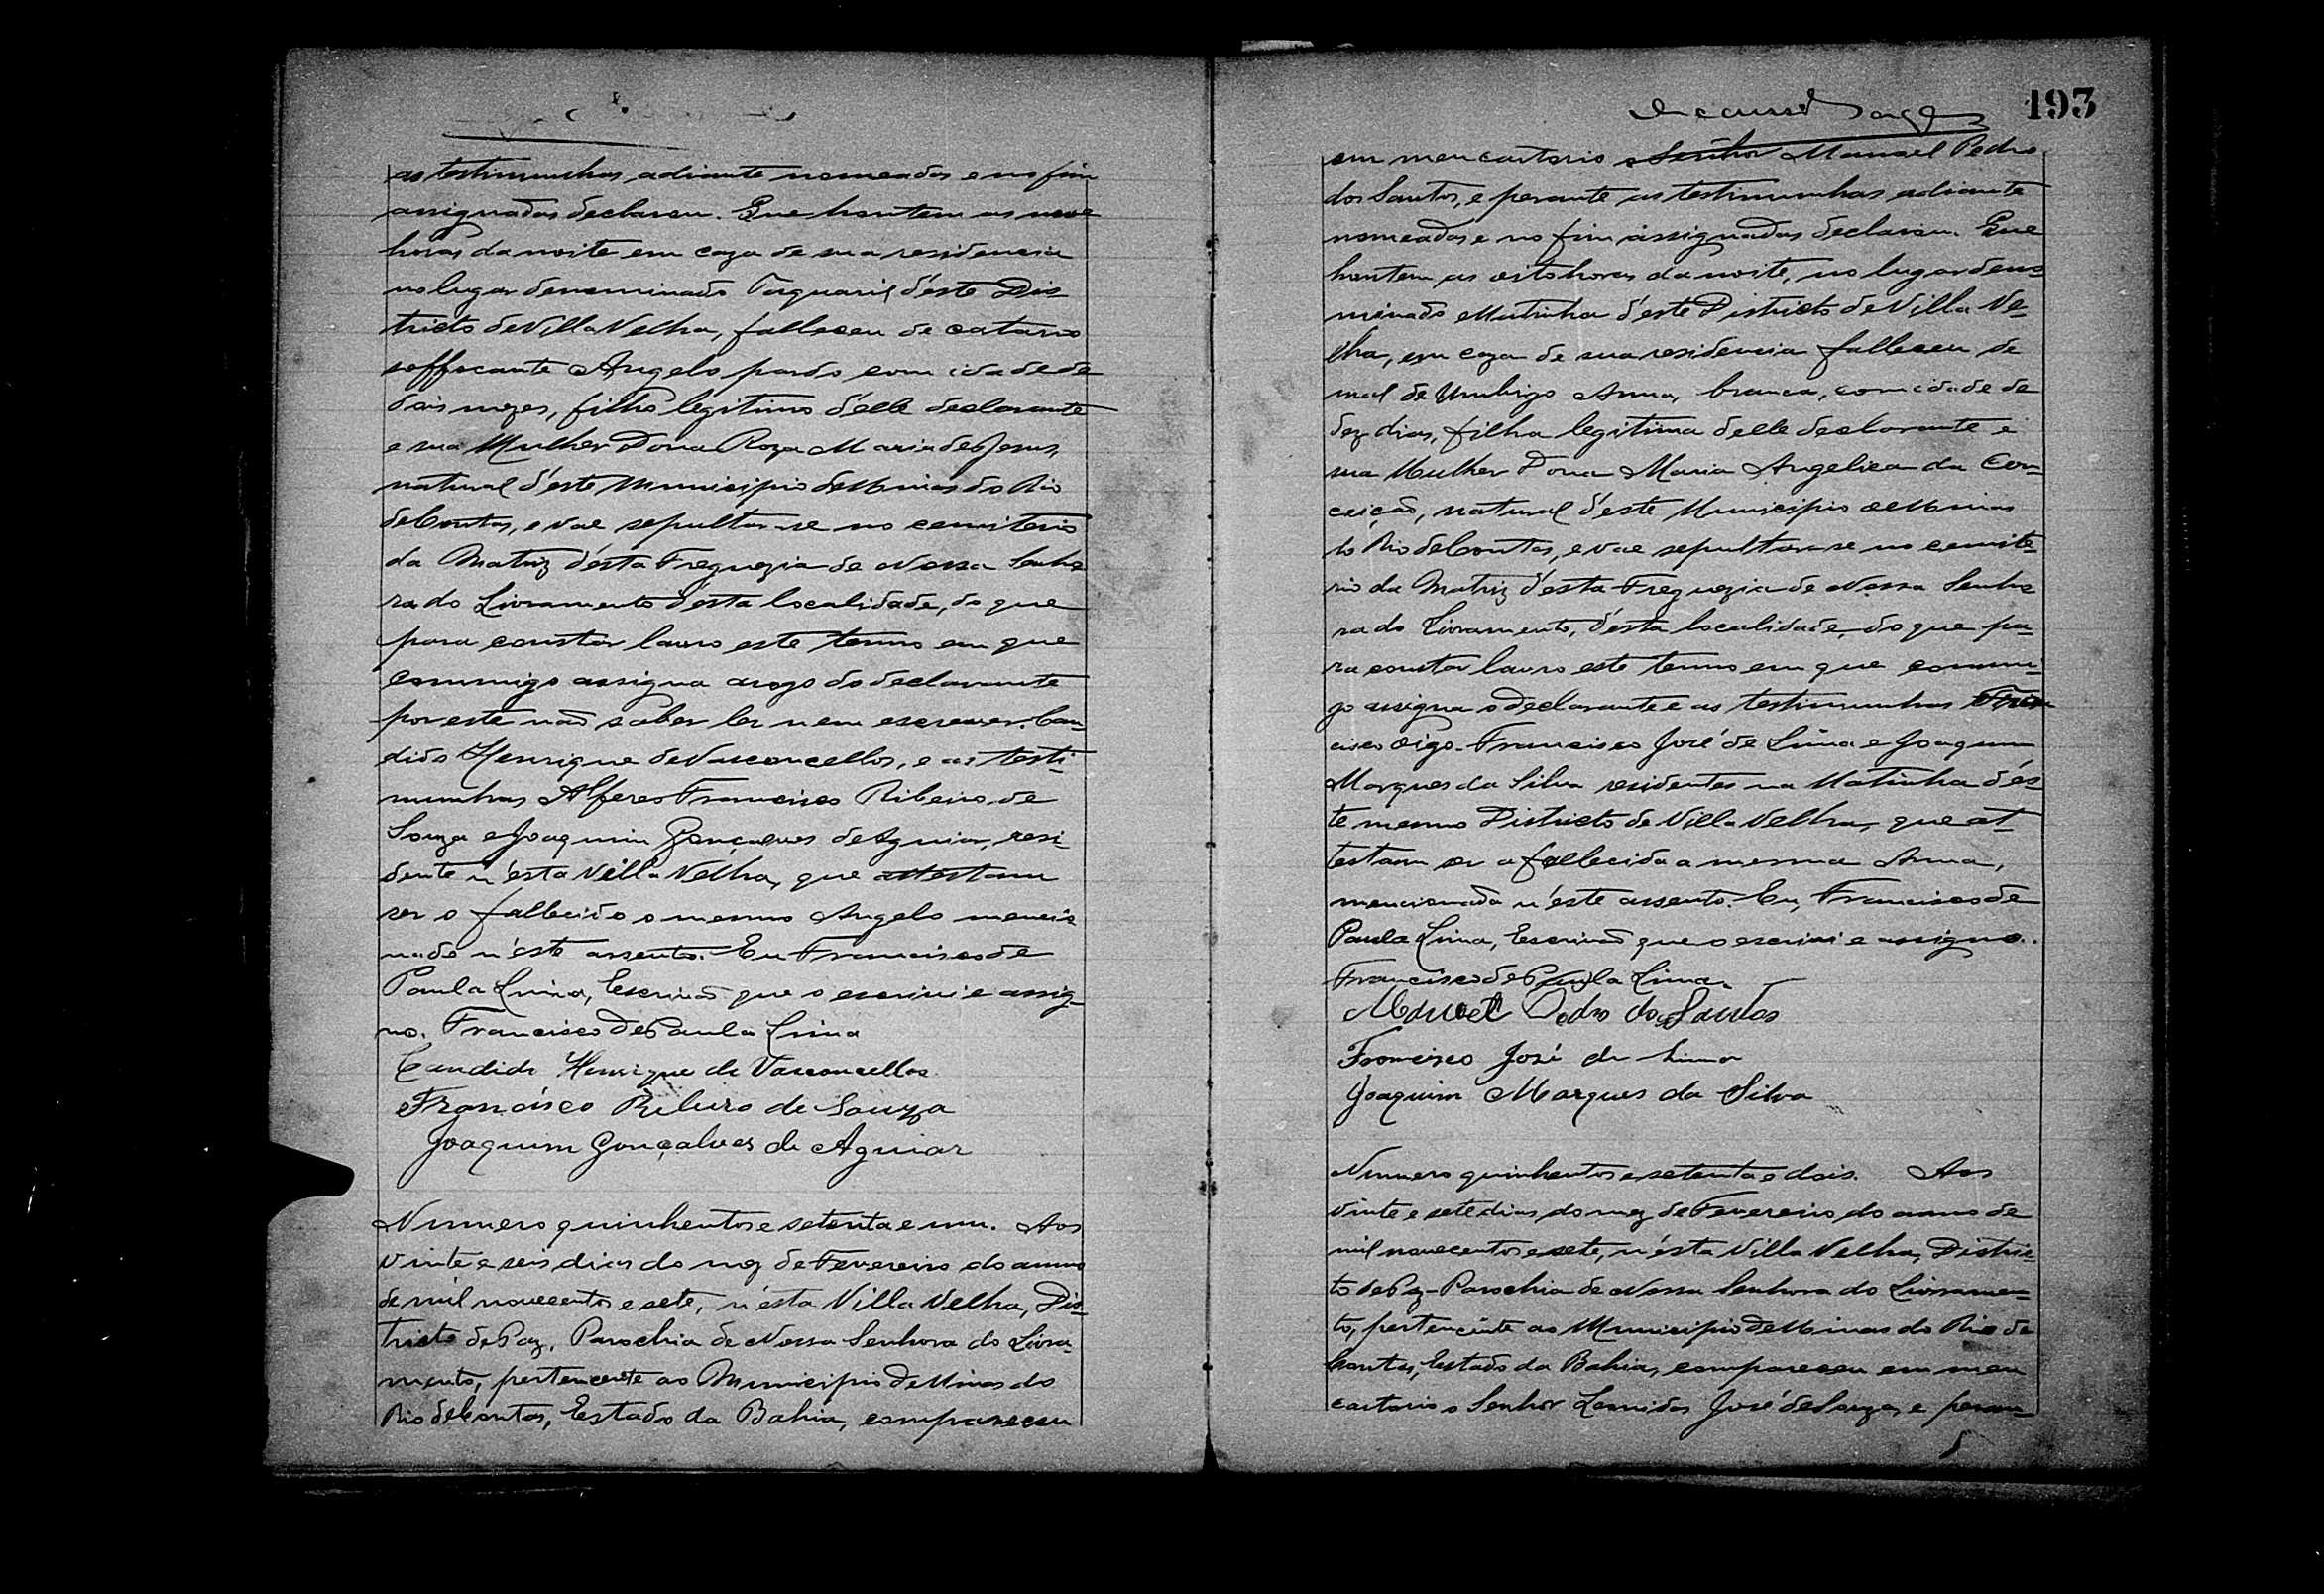 as testimunhas adiante nomeadas e no fim
assignadas declarou. Que hontem as nove
horas da noite em caza de sua residencia
no lugar denominado Taquaril d'este Dis
tricto de Villa Velha, falleceu de catarro
soffocante Angelo pardo com idade de
dois mezes, filho legitimo d'elle declarante
e sua Mulher Dona Roza Maria de Jesus,
natural d'este Municipio de Minas do Rio
de Contas, e vae sepultar-se no cemiterio
da Matriz d'esta Freguezia de Nossa Senho
ra do Livramento d'esta localidade, do que
para constar lavro este termo em que
commigo assigna arogo do declarante
por este não saber ler nem escrever. Can-
dido Henrique de Vasconcellos, e as testi-
munhas Alferes Francisco Ribeiro de
Souza e Joaquim Gonçalves de Aguiar, resi-
dente n'esta Villa Velha, que attestam
ser o fallecido o mesmo Angelo mencio-
nado n'este assento. Eu Francisco de
Paula Lima, Escrivão que o escrivi e assig-
no. Francisco de Paula Lima
Candido Henrique de Vasconcellos
Francisco Ribeiro de Souza
Joaquim Gonçalves de Aguiar
Numero quinhentos e setenta e um. Aos
vinte e seis dias do mez de Fevereiro do anno
de mil novecentos e sete, n'esta Villa Velha, Dis-
tricto de Paz, Parochia de Nossa Senhora do Livra-
mento, pertencente ao Municipio de Minas do
Rio de Contas, Estado da Bahia, compareceu
193
em meu cartorio o Senhor Manoel Pedro
dos Santos, e perante as testimunhas adiante
nomeadas e no fim assignadas declarou. Que
hontem as oito horas da noite, no lugar deno
minado Matinha d'este Districto de Villa Ve-
lha, em caza de sua residencia falleceu de
mal de Umbigo Anna, branca, com idade de
dez dias, filha legitima delle declarante e
sua Mulher Dona Maria Angelica da Con-
ceição, natural d'este Municipio de Minas
do Rio de Contas, e vae sepultar-se no cemite-
rio da Matriz d'esta Freguezia de Nossa Senho
ra do Livramento, d'esta localidade, do que pa-
ra constar lavro este termo em que commi-
go assigna o declarante e as testimunhas Fran
cisco digo- Francisco José de Lima e Joaquim
Marques da Silva residentes na Matinha d'es-
te mesmo Districto de Villa Velha, que at-
testam ser a fallecida a mesma Anna,
mencionada n'este assento. Eu, Francisco de
Paula Lima, Escrivão que o escrivi e assigno.
Francisco de Paula Lima.
Manoel Pedro dos Santos
Francisco José de Lima
Joaquim Marques da Silva
Numero quinhentos e setenta e dois. Aos
vinte e sete dias do mez de Fevereiro do anno de
mil novecentos e sete, n'esta Villa Velha, Distric-
to de Paz- Parochia de Nossa Senhora do Livramen-
to, pertencente ao Municipio de Minas do Rio de
Contas, Estado da Bahia, compareceu em meu
cartorio o Senhor Leonidas José de Souza, e peran-